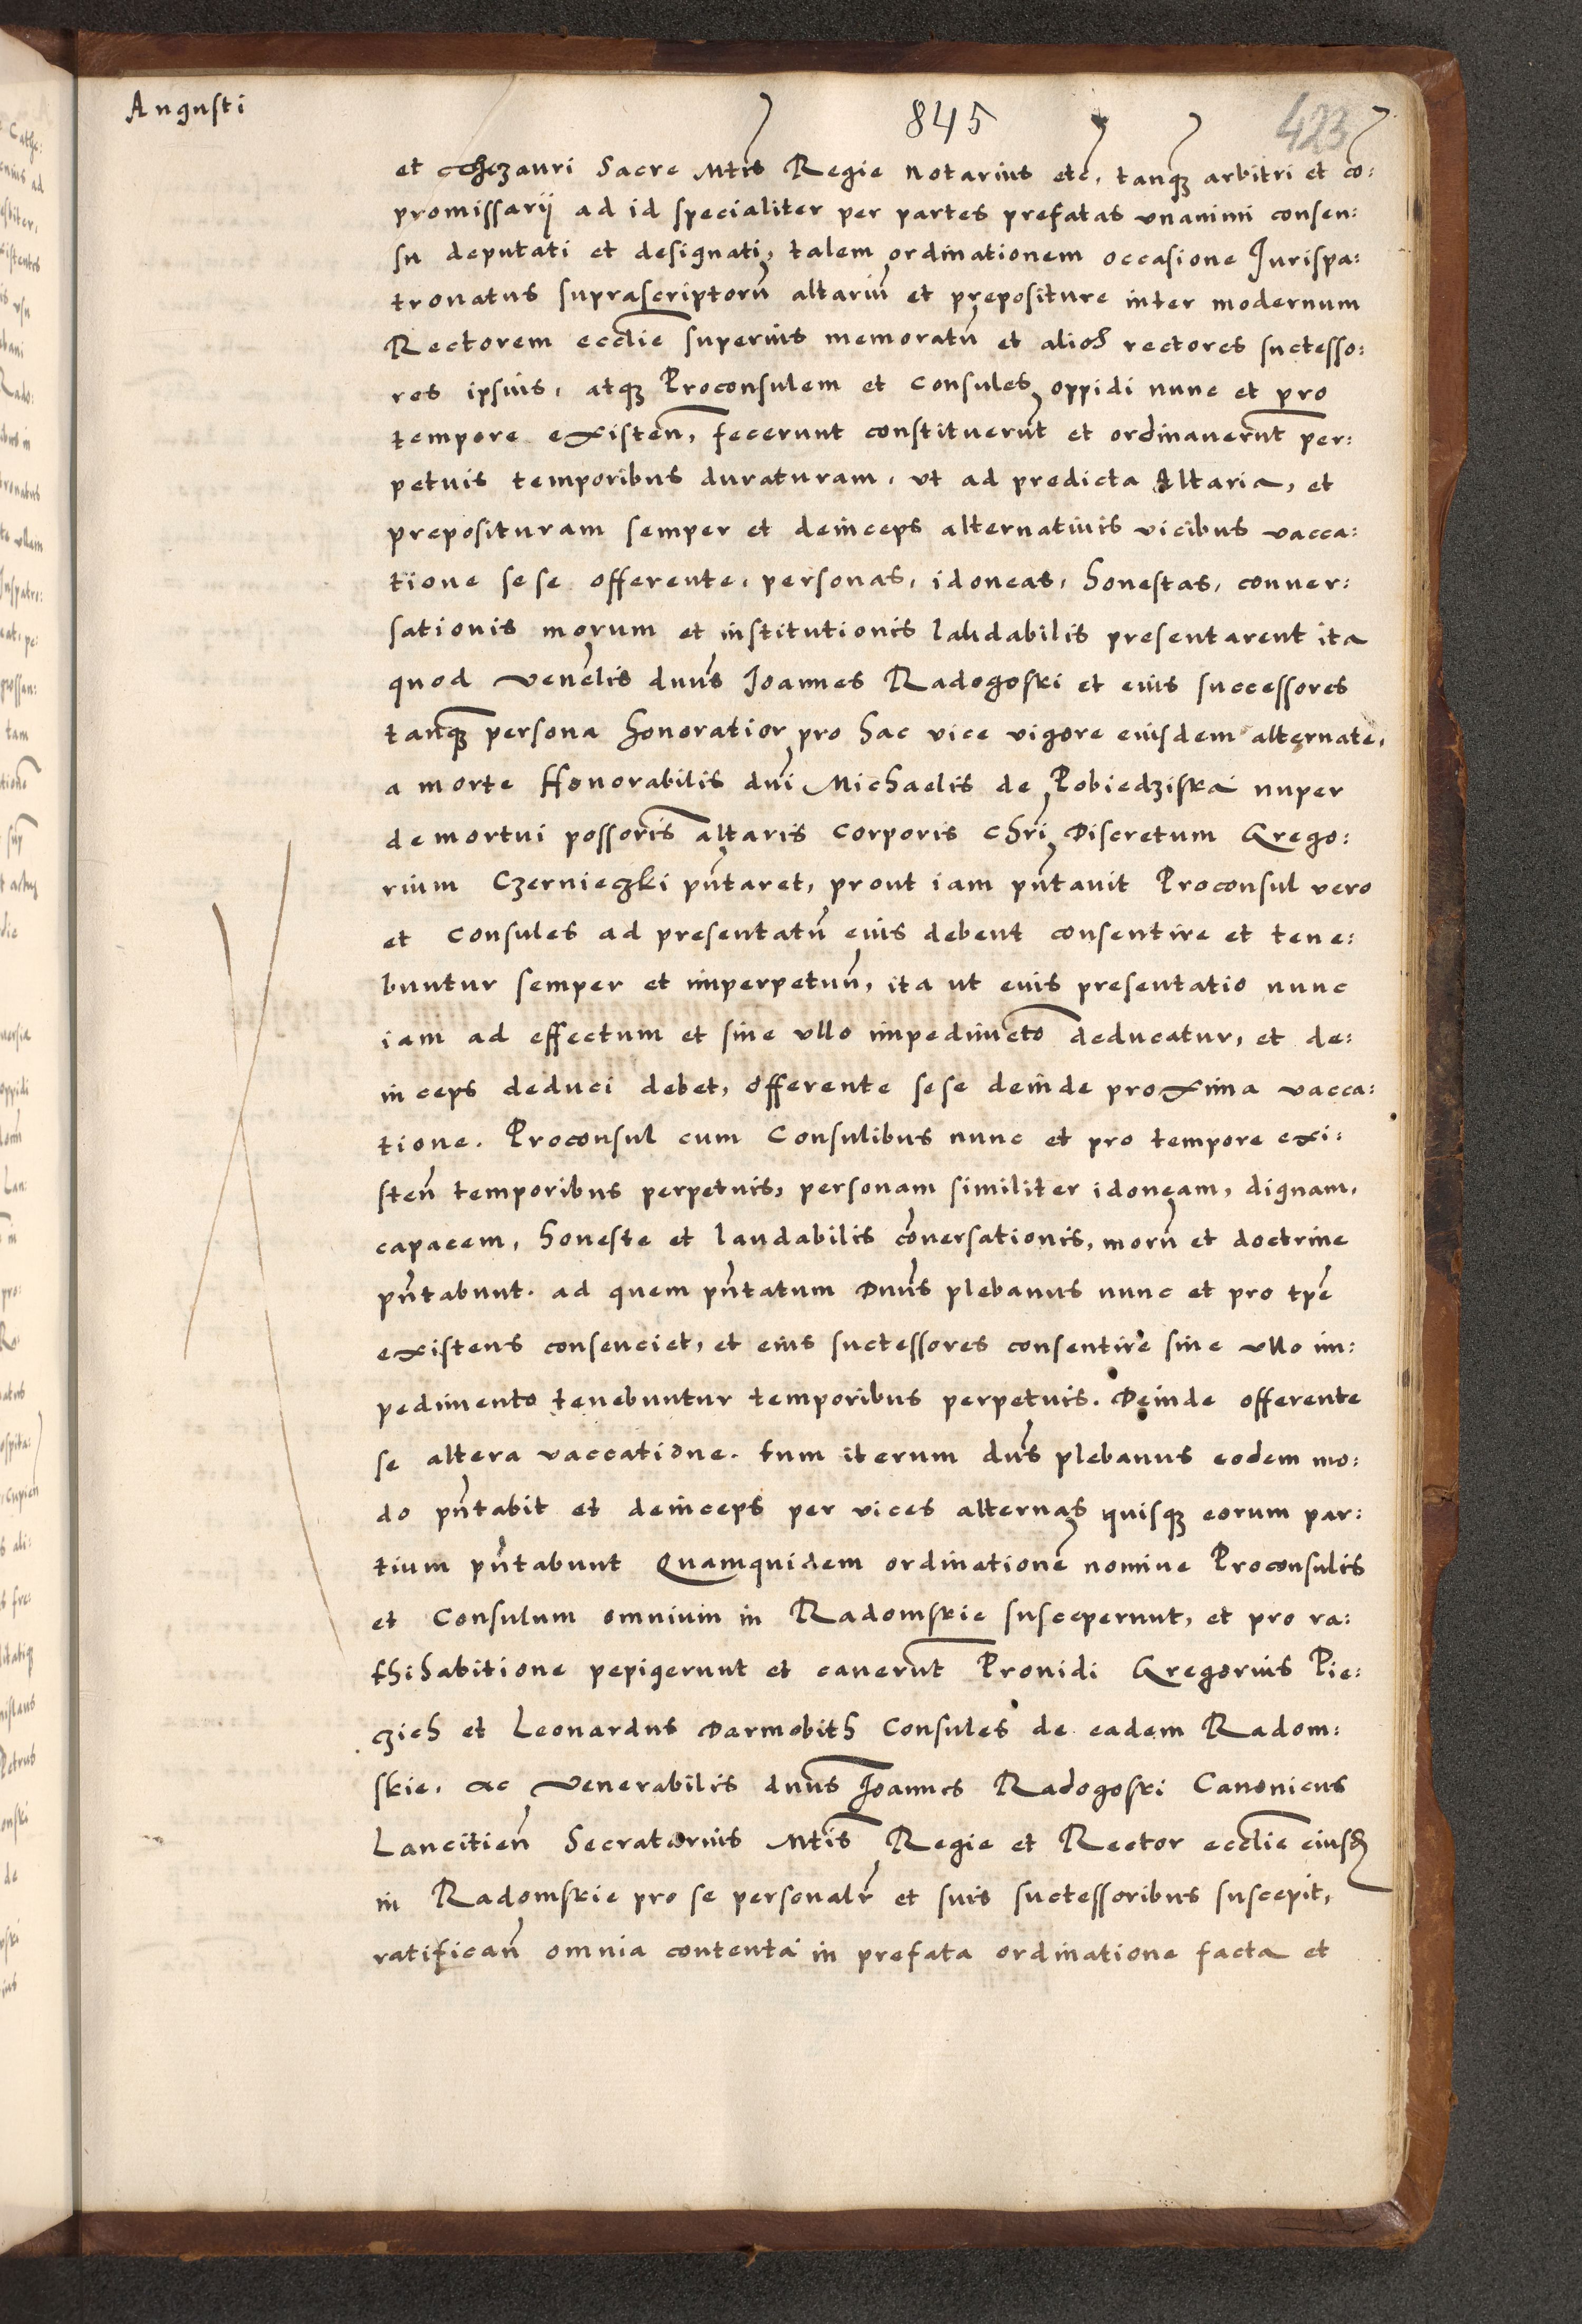 Augusti
845
423
et Thezauri Sacre Mtis Regie Notarius etc, tanq₃ arbitri et co:
promissarij ad id specialiter per partes prefatas vnanimi consen:
su deputati et designati, talem ordinationem occasione Jurispa:
tronatus suprascriptorū altariū et prepositure inter modernum
Rectorem ecclie superius memoratū et alios rectores successo:
res ipsius, atq₃ Proconsulem et Consules oppidi nunc et pro
tempore existen̄, fecerunt constituerūt et ordinauerūt per:
petuis temporibus duraturam, vt ad predicta Altaria, et
preposituram semper et deinceps alternatiuis vicibus vacca:
tione sese offerente, personas, idoneas, honestas, conuer:
sationis morum et institutionis laudabilis presentarent ita
quod Venelis dnus Joannes Radogoski et eius successores
tanq₃ persona honoratior pro hac vice vigore eiusdem alternate,
a morte Honorabilis dni Michaelis de Pobiedziska nuper
demortui possoris altaris Corporis Chri Discretum Grego:
rium Czernieczki pn̄taret, prout iam pn̄tauit Proconsul vero
et Consules ad presentatū eius debent consentire et tene:
buntur semper et imperpetuū, ita ut eius presentatio nunc
iam ad effectum et sine vllo impedimēto deducatur, et de:
inceps deduci debet, offerente sese deinde proxima vacca:
tione. Proconsul cum Consulibus nunc et pro tempore exi:
sten̄ temporibus perpetuis, personam similiter idoneam, dignam,
capacem, honeste et laudabilis cōuersationis, morū et doctrine
pn̄tabunt. ad quem pn̄tatum Dnus plebanus nunc et pro tpē
existens consenciet, et eius successores consentire sine vllo im:
pedimento tenebuntur temporibus perpetuis. Deinde offerente
se altera vaccatione. tum iterum dns plebanus eodem mo:
do pn̄tabit et deinceps per vices alternas quisq₃ eorum par:
tium pn̄tabunt Quamquidem ordinationē nomine Proconsulis
et Consulum omnium in Radomskie susceperunt, et pro ra:
thihabitione pepigerunt et cauerūt Prouidi Gregorius Pie:
czich et Leonardus Darmobith Consules de eadem Radom:
skie, ac Venerabilis dnus Joannes Radogoski Canonicus
Lancitien̄ Secratarius Mtis Regie et Rector ecclie eiusd
in Radomskie pro se personalr et suis successoribus suscepit,
ratifican̄ omnia contenta in prefata ordinatione facta et